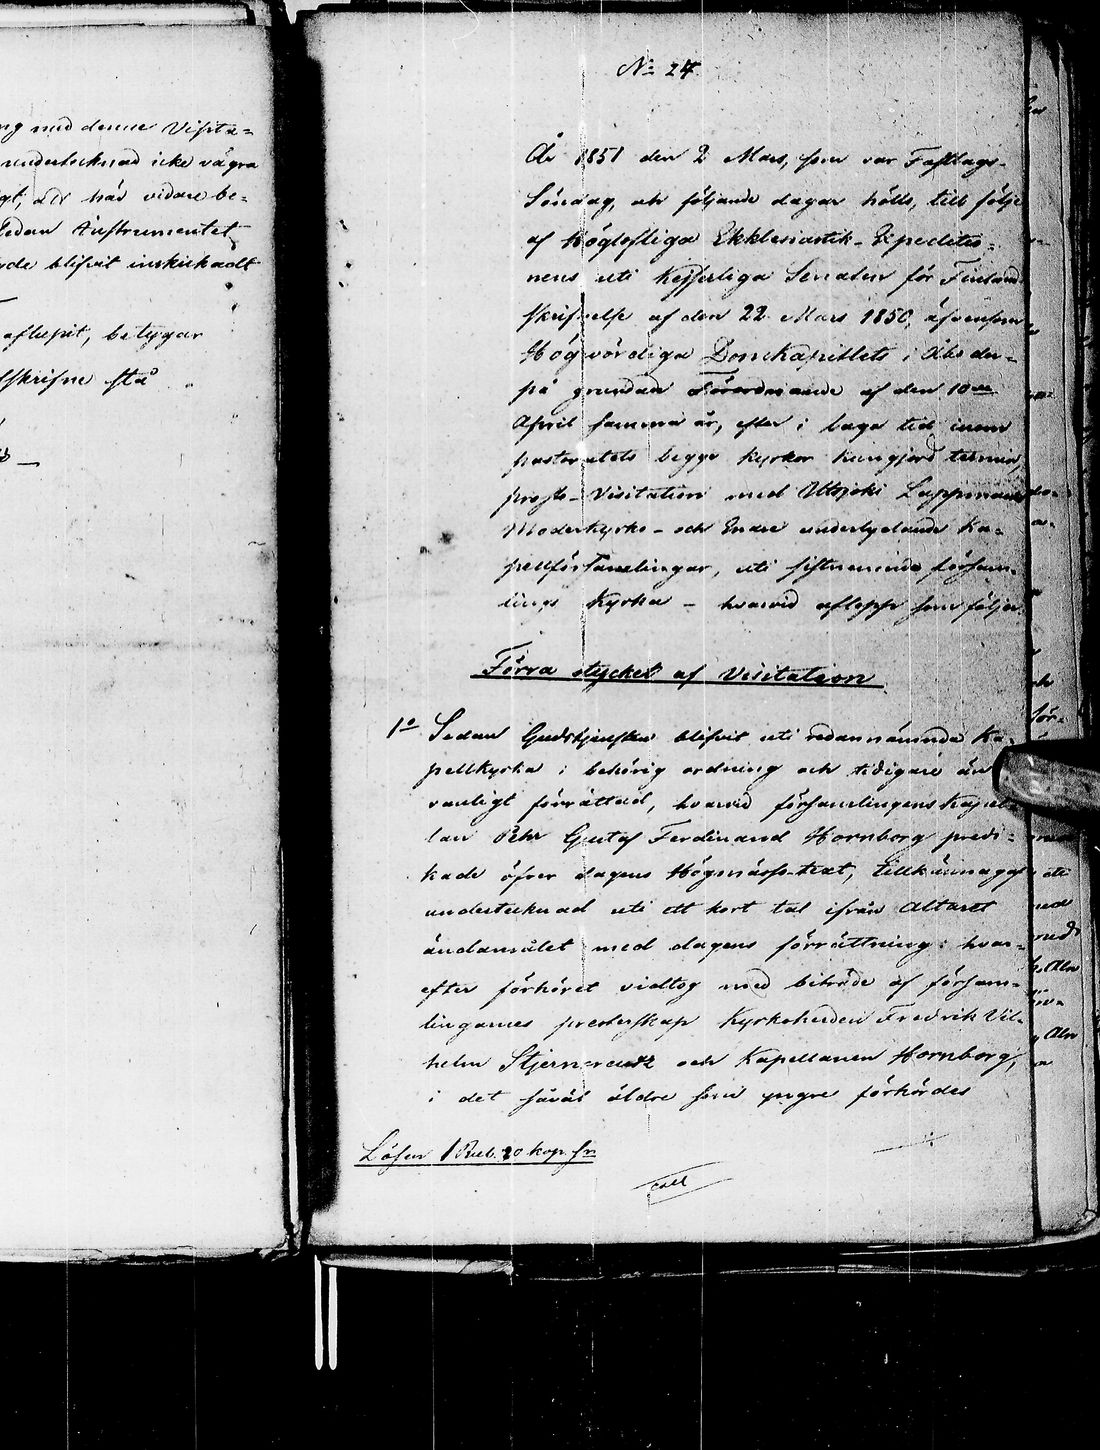 ng med denne Visita=
undertecknad icke vägra
gt, och här vidare be-
Sedan Instrumentet
blifvit inskickadt
aflupit, betygar
No 24
År 1851 den 2 Mars, som var Fastlags-
Söndag, och följande dagar hölls, till följe
af Höglofliga Ekklesiastik-Expeditio-
nens uti Kejserliga Senaten för Finland
skrifvelse af den 22 Mars 1850, äfvensom
Högvördiga Domkapitlets i Åbo der-
på grundade Förordnande af den 10de
April samma år, efter i laga tid inom
pastoratets begge kyrkor kungjord termin,
prosts-Visitation med Utsjoki Lappmarks
Moderkyrko- och Enare underlydande Ka-
pellförsamlingar, uti sistnämnde försam-
lings Kyrka – hvarvid aflopp som följer
Förra stycket af Visitation
1o Sedan Gudstjensten blifvit uti redannämnde Ka-
pellkyrka i behörig ordning och tidigare än
vanligt förrättad, hvarvid församlingens Kapel-
lan Pehr Gustaf Ferdinand Hornborg predi-
kade öfver dagens Högmässo-text, tillkännagaf
undertecknad uti ett kort tal ifrån Altaret
ändamålet med dagens förrättning: hvar-
efter förhöret vidtog med biträde af försam-
lingarnes presterskap Kyrkoherden Fredrik Vil-
helm Stjerncreutz och Kapellanen Hornborg,
i det såväl äldre som yngre förhördes
Lösen 1 Rub. 20 kop. Sr